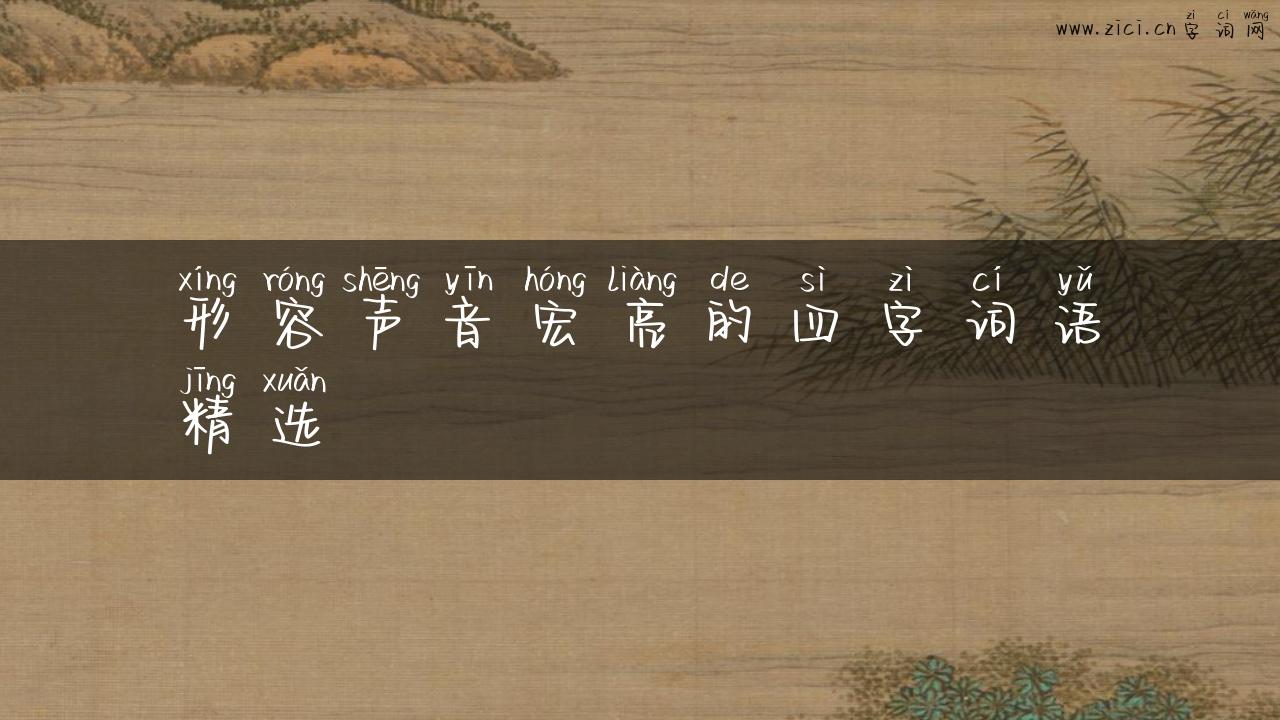 zì cí wǎng
www.zici.cn字词网
xíng róng shēng yīn hóng liàng de sì zì cí yǔ
形容声音宏亮的四字词语
jīng xuǎn
精选